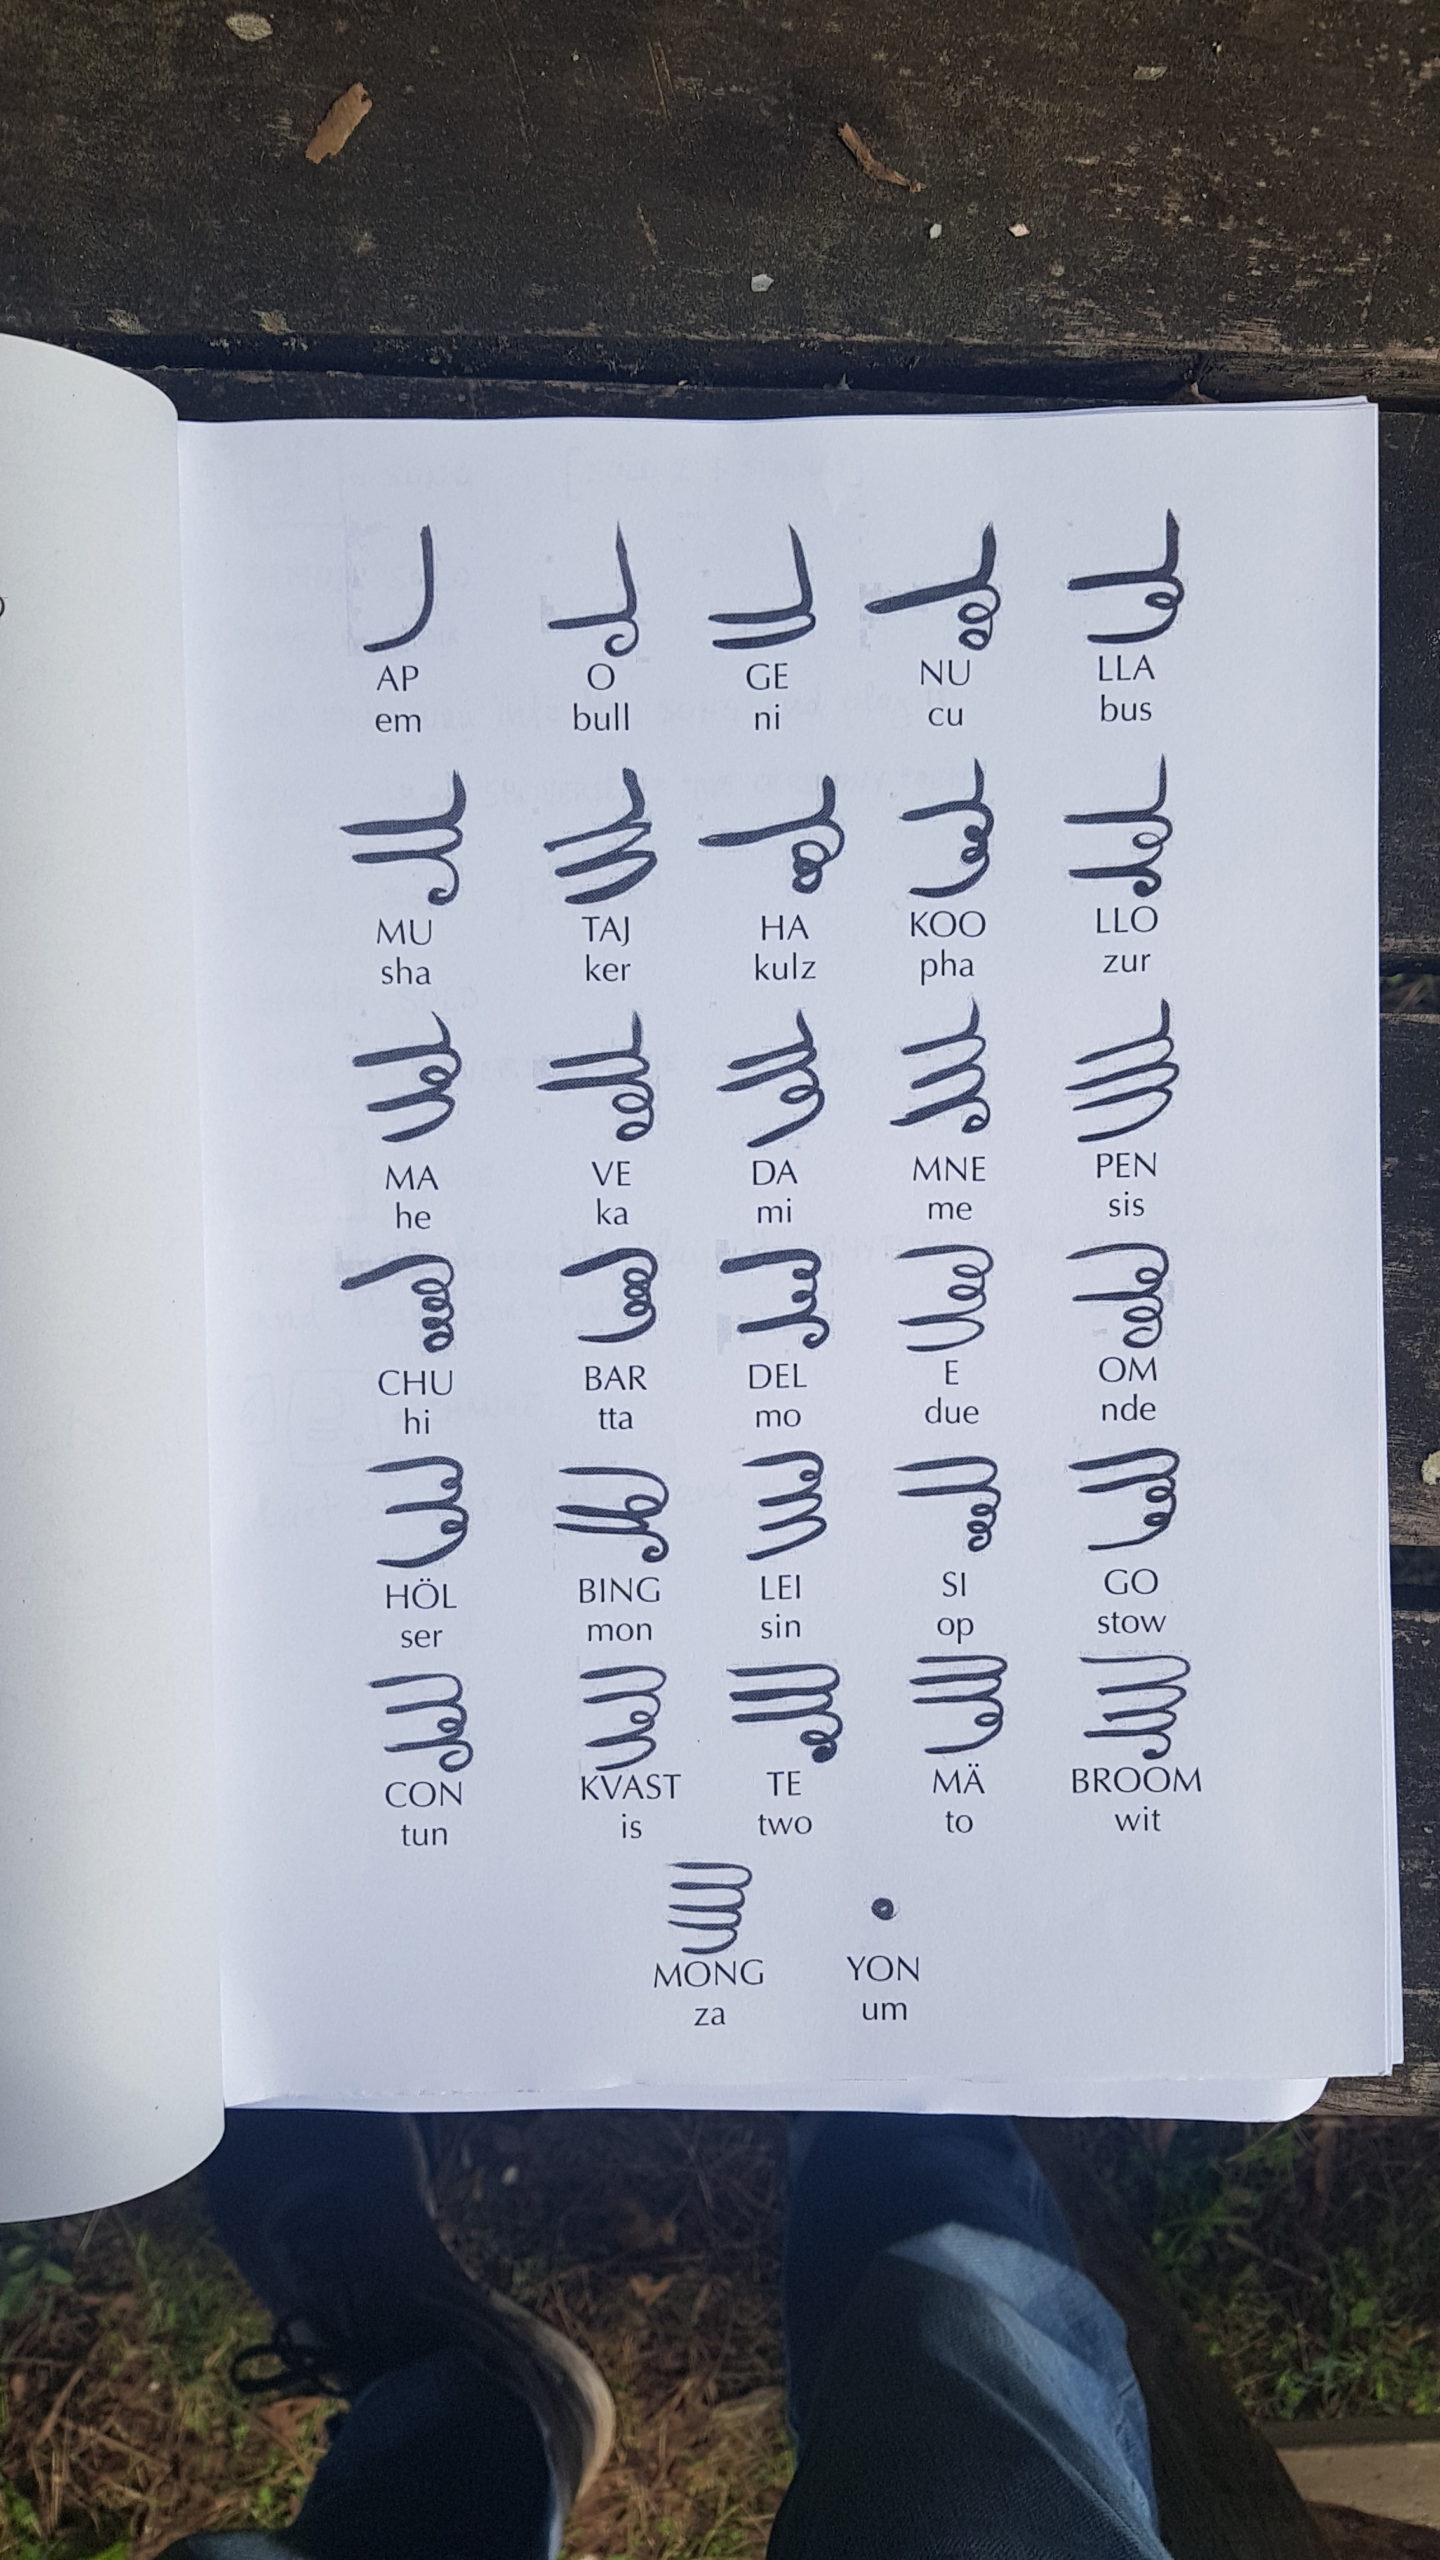 AP O GE NU LLA
em bull ni cu bus
MU TAJ HA KOO LLO
sha ker kulz pha zur
MA VE DA MNE PEN
he ka mi me sis
CHU BAR DEL E OM
hi tta mo due nde
HÖL BING LEI SI GO
ser mon sin op stow
CON KVAST TE MÄ BROOM
tun is two to wit
MONG YON
za um